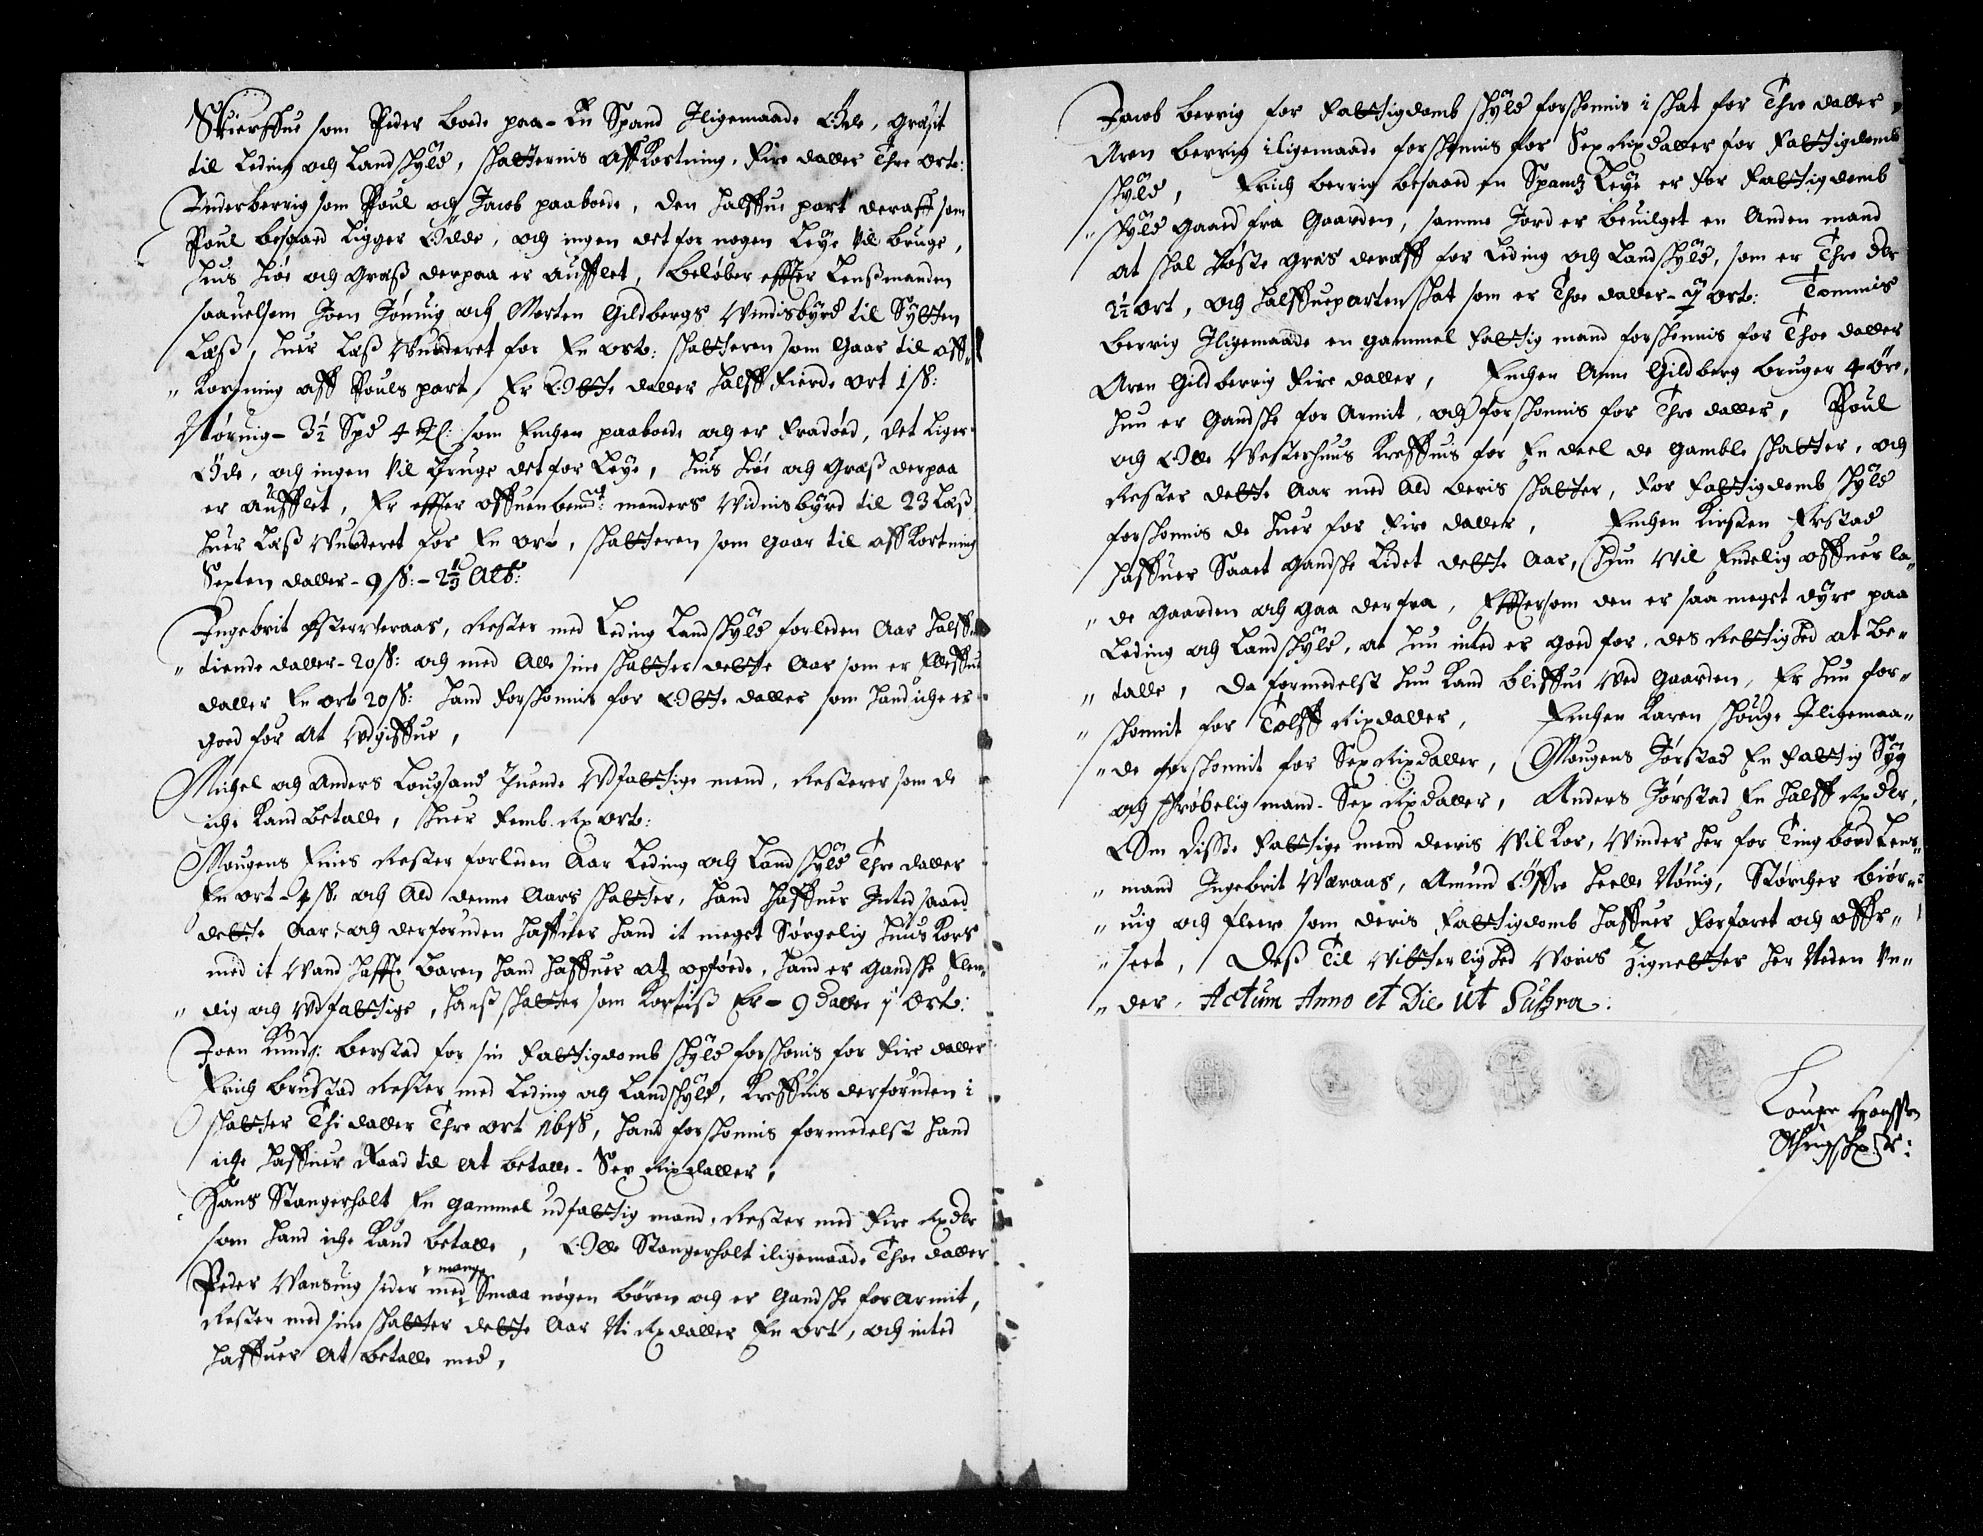 Skierffue som Peder boede paa - En Spand Iligemaade Øde, Græsit
til Leding och Landskyld, skatternis affkortning, Fire daller Thre ort:
Inderberrig som Poul och Jacob paaboede, den halffue part deraff som
Poul besaaed ligger Ødde, och ingen det for nogen Leye vil bruge,
huis Høe och Græss derpaa er aufflet, beløber effter Lenssmanden
saauelsom Joen Jønnig och Morten Gildbergs Vindisbyrd til Sytten
Læss, huer Læss Vurderet for En ort: skatteren som gaar til aff-
" kortning aff Pouls part, Er Otte daller halff Fierde ort 1 ss:
Nøruig - 3½ Spd 4 som Enchen paaboede och er fradøed, det liger
Øde, och ingen vil bruge det for Leye, huis Høe och Græss derpaa
er aufflet, Er effter offuenbemt: menders Vidnisbyrd til 23 Læss
huer Læss Vurderet for En ort, skatteren som gaar til affkortning
Sexten daller - 9 ss: - Alb:
Ingebrit Østerueraas, Rester med Leding Landskyld forleden Aar halff
" tiende daller - 20 ss: och med Alle sine skatter dette Aar som er Elleffue
daller En ort 20 ss: hand forskonnis for Otte daller som hand iche er
goed for at Udgiffue,
Michel och Anders Lougsand Thuende Udfattige mend, Resterer som de
iche kand betalle, huer Femb Rx ort:
Mougens Fines Rester forleden Aar Leding och Landskyld Thre daller
En ort 4 ss. och Ald denne Aars skatter, hand haffuer Intid saaed
dette Aar, och derforuden haffuer hand it meget Sørgelig huus kors
med it Vand hafft baren, hand haffuer at opføede, hand er gandske Elen-
" dig och Udfattige, hanss skatter som kortiss Er - 9 daller 1 ort:
Joen Berstad for sin Fattigdomb skyld forskonis for Fire daller
Erich Brustad Rester med Leding och Landskyld, kreffuis derforuden i
skatter Thi daller Thre ort 16 ss, hand forskonnis formedelst hand
iche haffuer Raad til at betalle - Sex Rixdaller,
Hans Stangerholt En gammel udfattig mand, Rester med Fire Rxdlr
som hand iche kand betalle, Olle Stangerholt iligemaade Thoe daller
Peder Vansuig sider med mange Smaa nøgen Børen och er gandske forarmit,
Rester med sine skatter dette Aar Ni Rxdaller En ort, och inted
haffuer at betalle med,
Jacob Berrig for Fattigdomb skyld forskonnis i skat for Thre daller
Aren Berrig iligemaade forskonnis for Sex Rixdaller for Fattigdomb
skyld, Erich Berrig besaaed en Spands Leye er for Fattigdomb
" skyld gaaed fra Gaarden, samme Jord er beuilget en Anden mand
at skal høste græs deraff for Leding och Landskyld, som er Thre dlr
2½ ort, och halffueparten skat som er Thoe daller - ort: Tommis
Berrig Iligemaade en gammel Fattig mand forskonnis for Thoe daller
Aren Gildberrig Fire daller, Enchen Anne Gildberg bruger 4 øre,
hun er gandske for Armit, och forskonnis for Thre daller, Poul
och Olle Vesterhuus kreffuis for En deel de gamble skatter, och
Rester dette Aar med Ald deris skatter, for Fattigdomb skyld
forskonnis de huer for Fire daller, Enchen Kirsten Erstad
haffuer Saaet gandske Lidet dette Aar, hun vil Endelig offuer la-
" de gaarden och gaa derfra, Effter som den er saa meget dyre paa
Leding och Landskyld, at hun inted er goed for, des Rettighed at be-
" talle, da formedelst hun kand bliffue ved Gaarden, Er hun for-
" skonnit for Tolff Rixdaller, Enchen Karen Skouge Iligemaa-
" de forskonnit for Sex Rixdaller, Mougens Jørstad En Fattig Syg
och skrøbelig mand - Sex Rixdaller, Anders Jørstad En halff Rxdlr,
Om disse Fattige mend deris Vilkor, Vinder her for Ting bord Lens-
" mand Ingebrit Væraas, Amund Øffre Helle Nønig, Størcher Biør-
" uig och fleere som deris Fattigdomb haffuer Forfaret och offr-
" seet, Dess Til Vitterlighed Voris Zignetter her Neden Un-
" der. Actum Anno et Die ut Supra:
Loufr Hansen